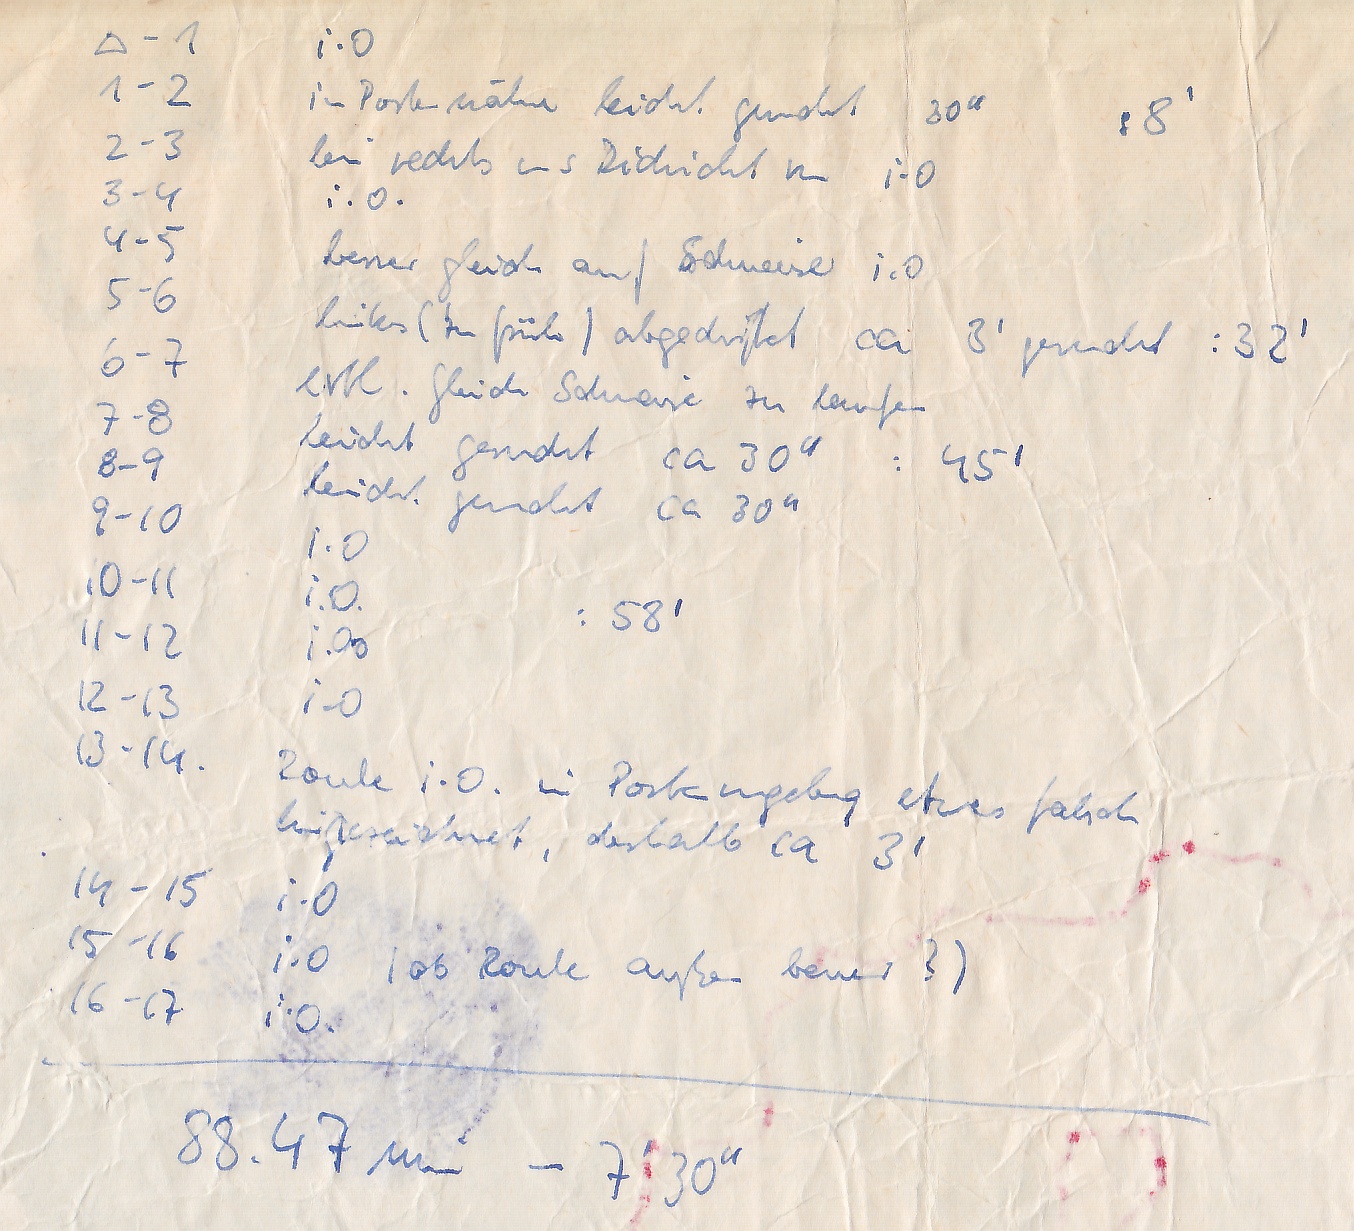 △-1 i.O
1-2 in Postennähe leicht gesucht 30" :8'
2-3 bei rechts ins Dickicht i.O
3-4 i.O.
4-5 besser gleich auf Schneise i.O
5-6 links (zu früh) abgedriftet ca 3' gesucht :32'
6-7 evtl. gleich Schneise zu laufen
7-8 leicht gesucht ca 30" : 45'
8-9 leicht gesucht ca 30"
9-10 i.O
10-11 i.O. : 58'
11-12 i.O.
12-13 i.O
13-14. Route i.O. in Postenumgebung etwas falsch
, deshalb ca 3'
14-15 i.O
15-16 i.O (ob Route außen besser ?)
16-17 i.O.
88.47 min – 7'30"